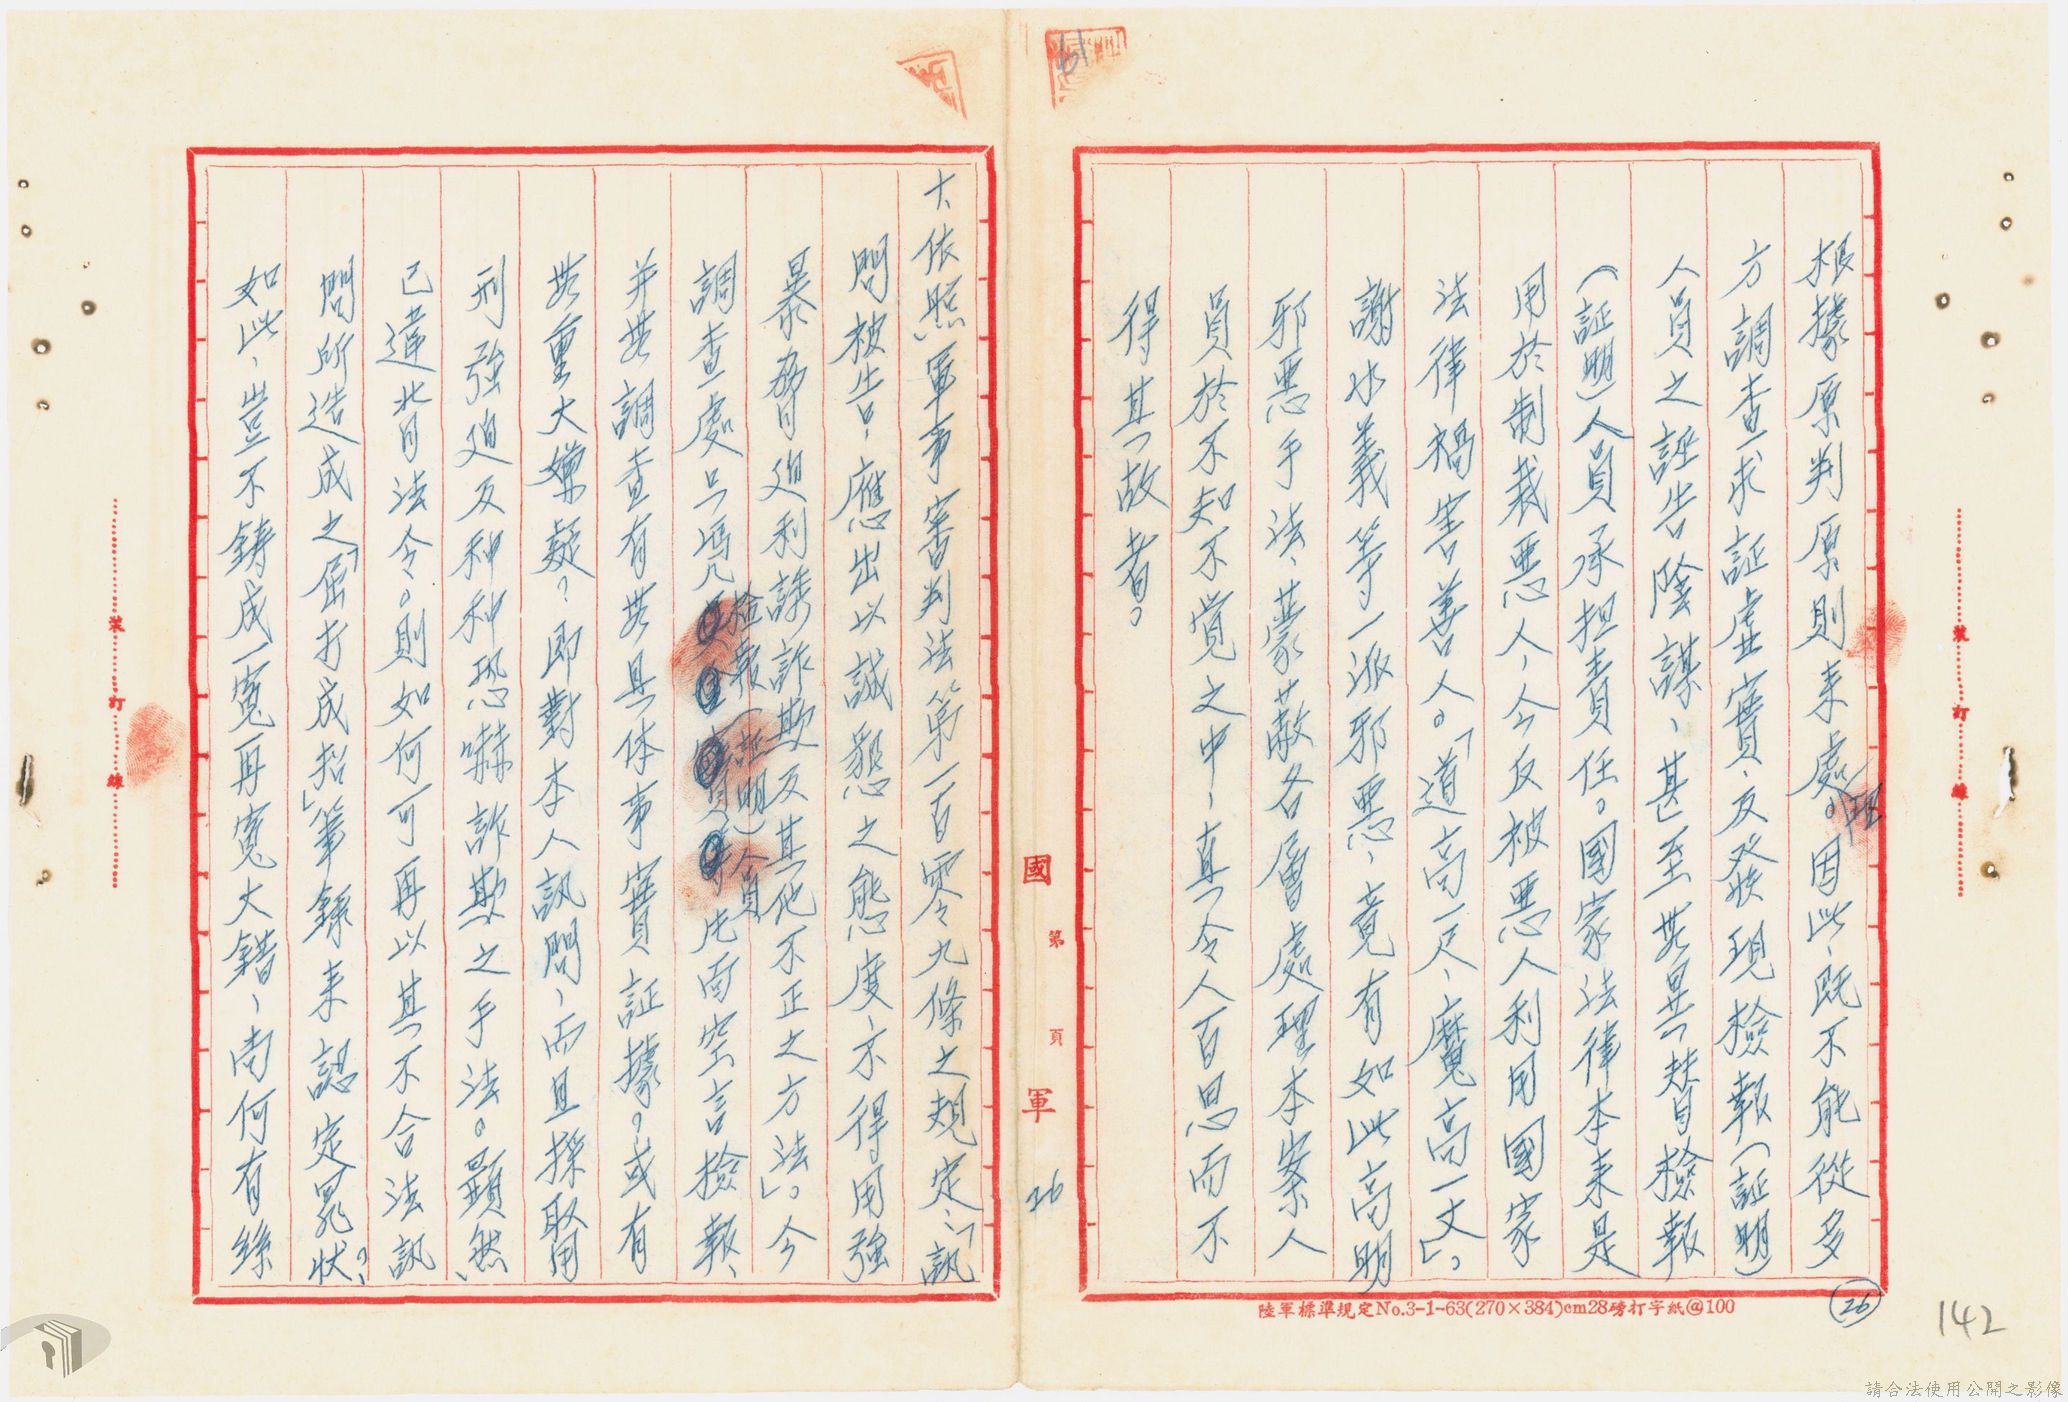 根據原判原則来處理。因此、既不能從多
方調查求証虛實、反發現檢報(証明)
人員之誣告陰謀、甚至無異替檢報
(証明)人員承担責任。國家法律本来是
用於制裁悪人，今反被悪人利用國家
法律禍害善人。「道高一尺、魔高一丈」，
謝水義等一派邪悪、竟有如此高明
邪悪手法、蒙蔽各層處理本案人
員於不知不覚之中、真令人百思而不
得其故者。
大、依照軍事審判法第一百零九條之規定、「訊
問被告，應出以誠懇之態度、不得用強
暴脅迫利誘詐欺及其他不正之方法」。今
調查處只凴几檢報(証明)人員片面空言檢報、
并無調查有無具体事實証據。或有
無重大嫌疑？即對本人訊問、而且採取用
刑強迫及种种恐嚇詐欺之手法。顯然、
已違背法令。則如何可再以其不合法訊
問所造成之「屈打成招」筆錄来認定罪狀？
如此、豈不鑄成一寃再寃大錯、尚何有絲
國
第
頁
軍
26
裝
訂
線
裝
訂
線
陸軍標準規定No.3-1-63(270×384)cm28磅打字紙@100
26
142
請合法使用公開之影像